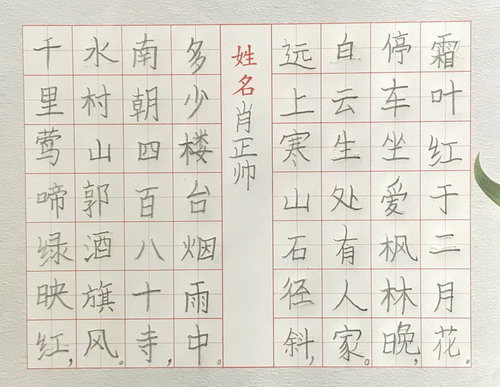 千里莺啼绿映红,
水村山郭酒旗风。
南朝四百八十寺,
多少楼台烟雨中。
姓名肖正帅
远上寒山石径斜,
白云生处有人家。
停车坐爱枫林晚,
霜叶红于二月花。